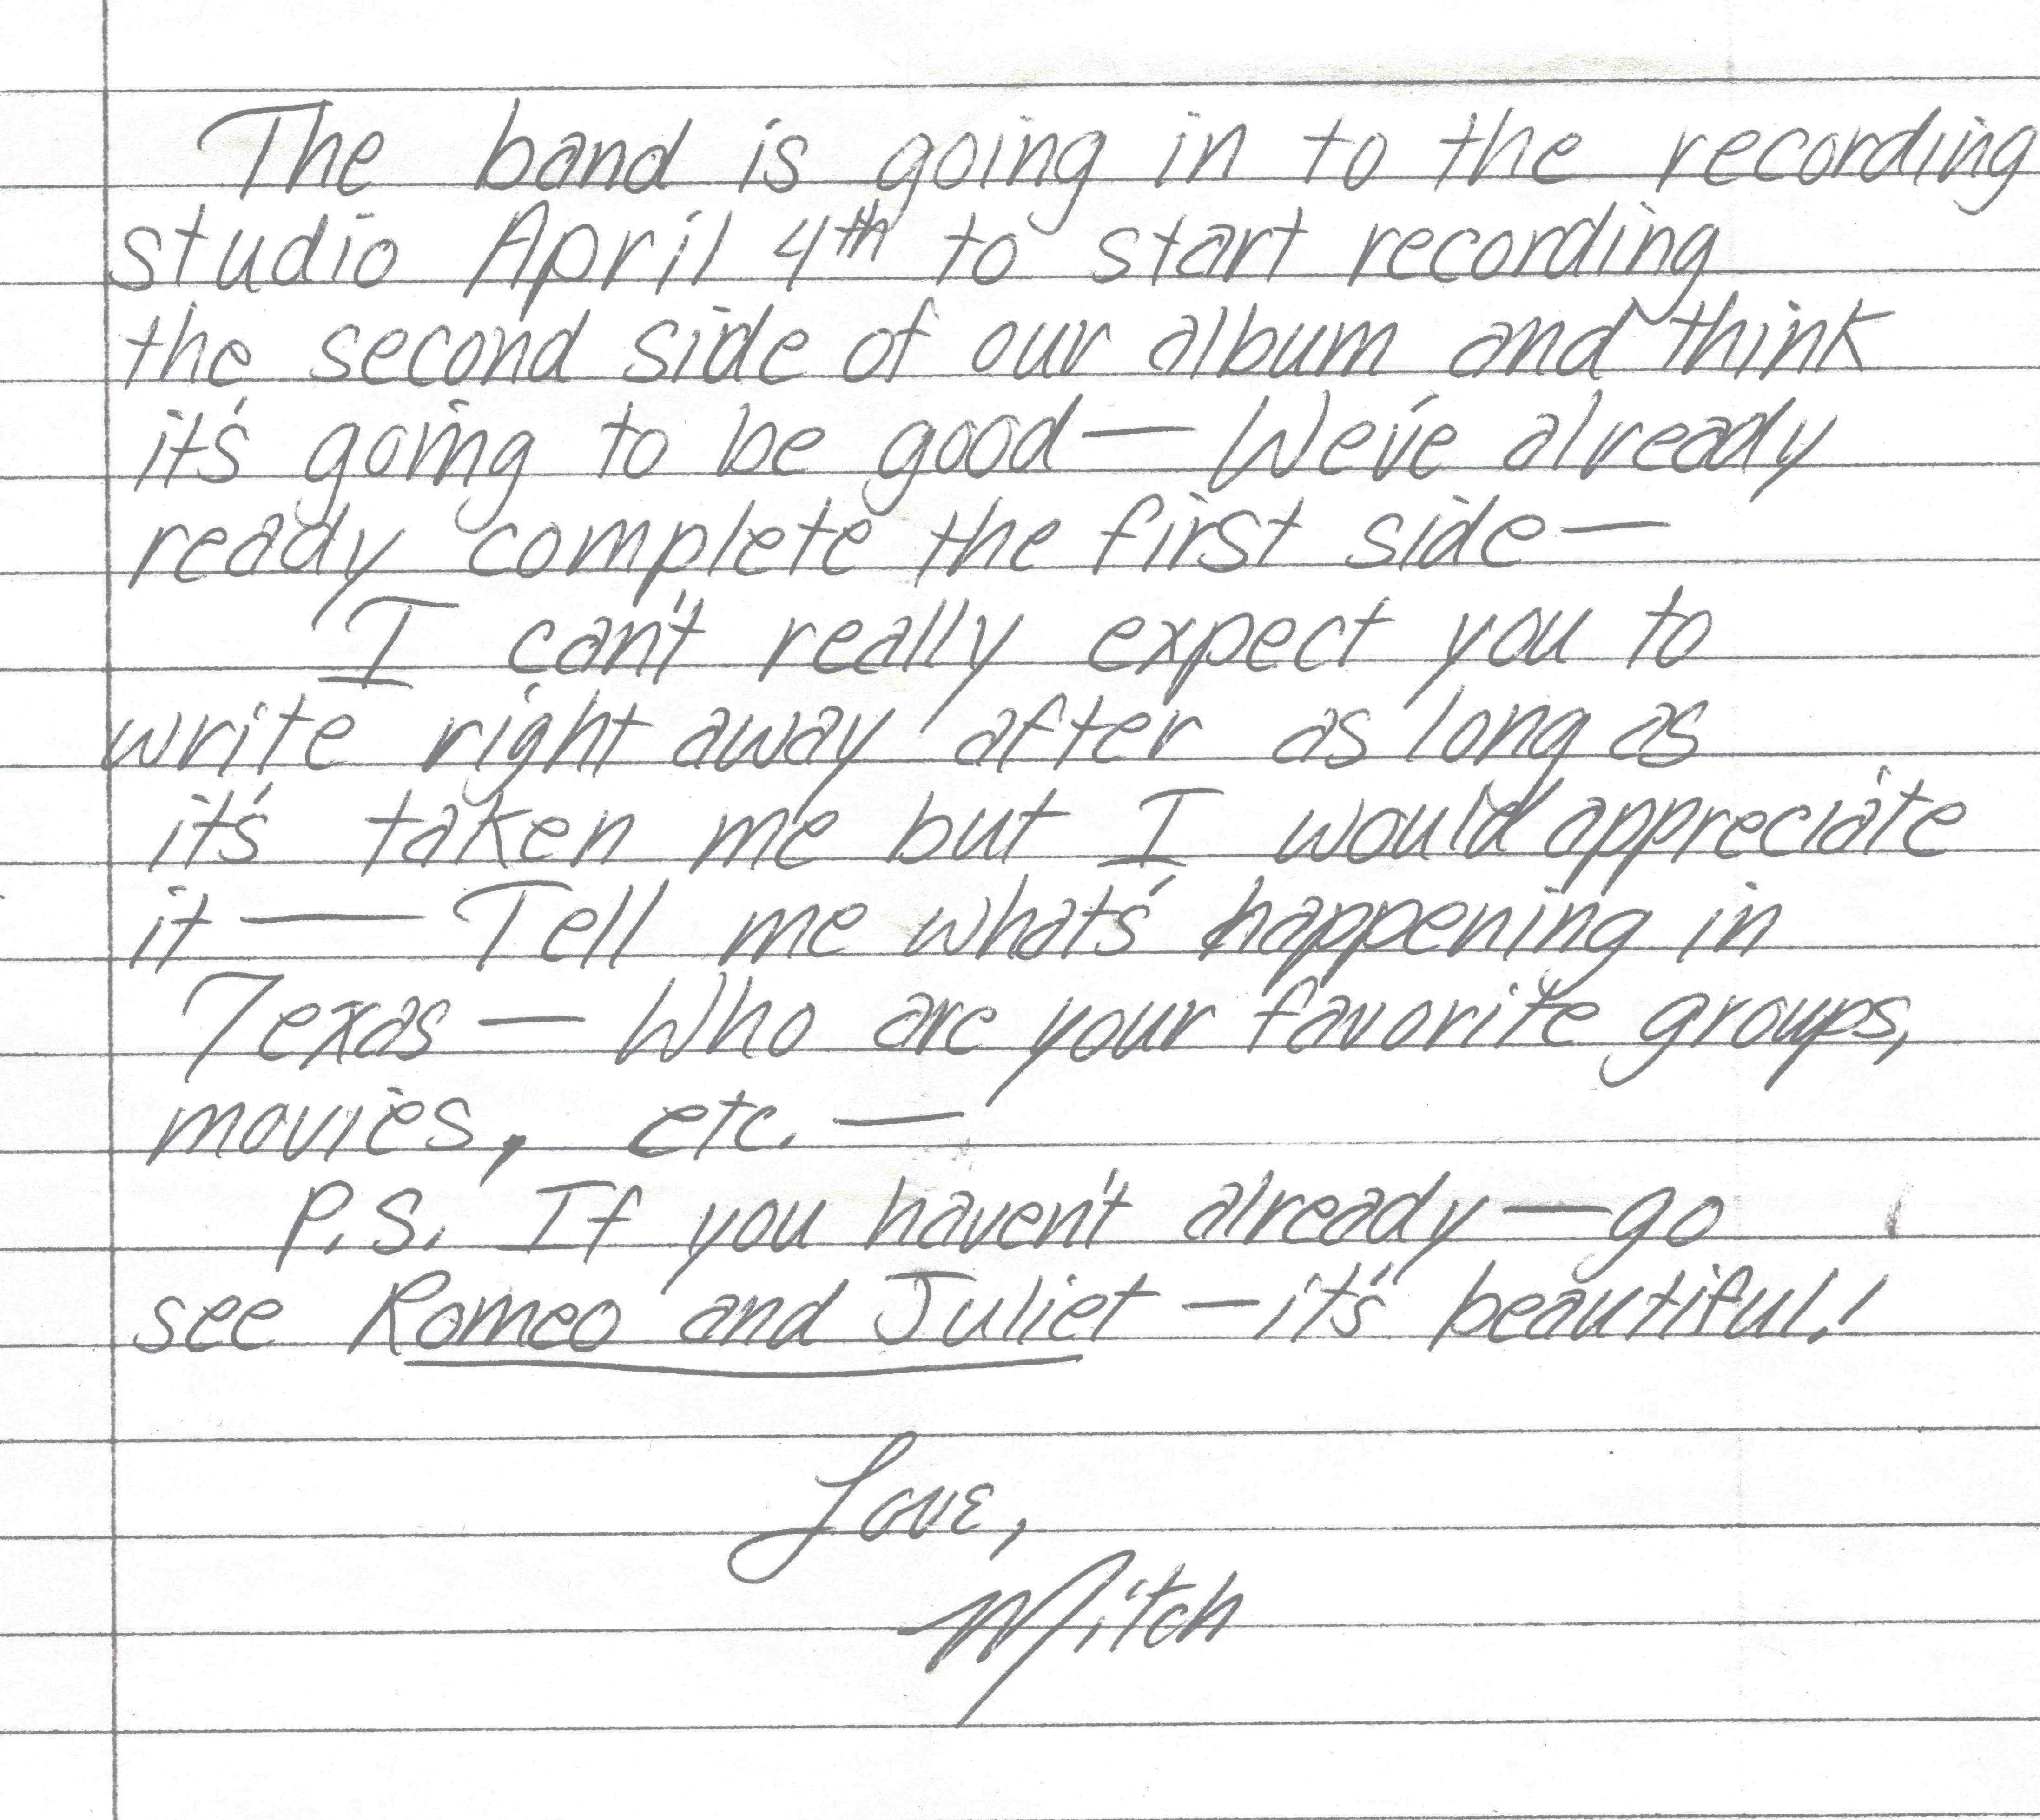 The band is going in to the recording
studio April 4th to start recording
the second side of our album and think
it's going to be good — We've already
ready complete the first side —
I can't really expect you to
write right away after as long as
it's taken me but I would appreciate
it — Tell me what's happening in
Texas — Who are your favorite groups,
movies, etc. —
P.S. If you haven't already — go
see Romeo and Juliet — it's beautiful!
Love,
Mitch